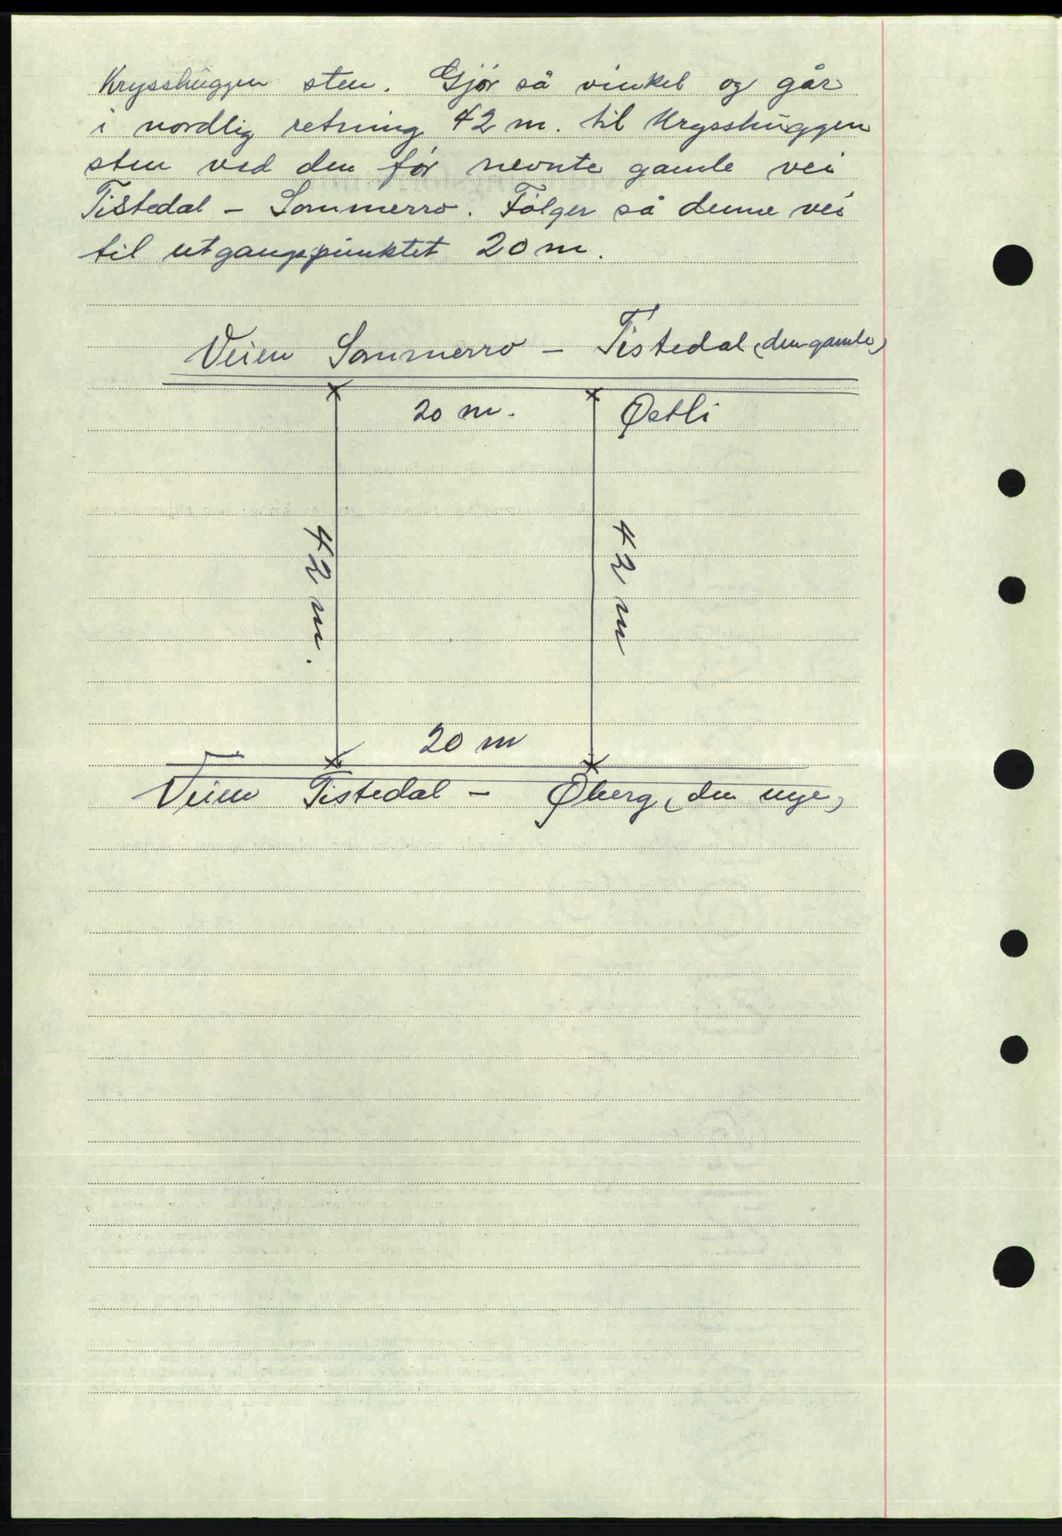 Krysshuggen sten. Gjør så vinkel og går
i nordlig retning 42 m. til Krysshuggen
sten ved den før nevnte gamle vei
Tistedal - Sommerro. Følger så denne vei
til utgangspunktet 20 m.
Veien Sommerro - Tistedal (den gamle)
20 m. Østli
42 m.
42 m
20 m
Veien Tistedal - Øberg (den nye)